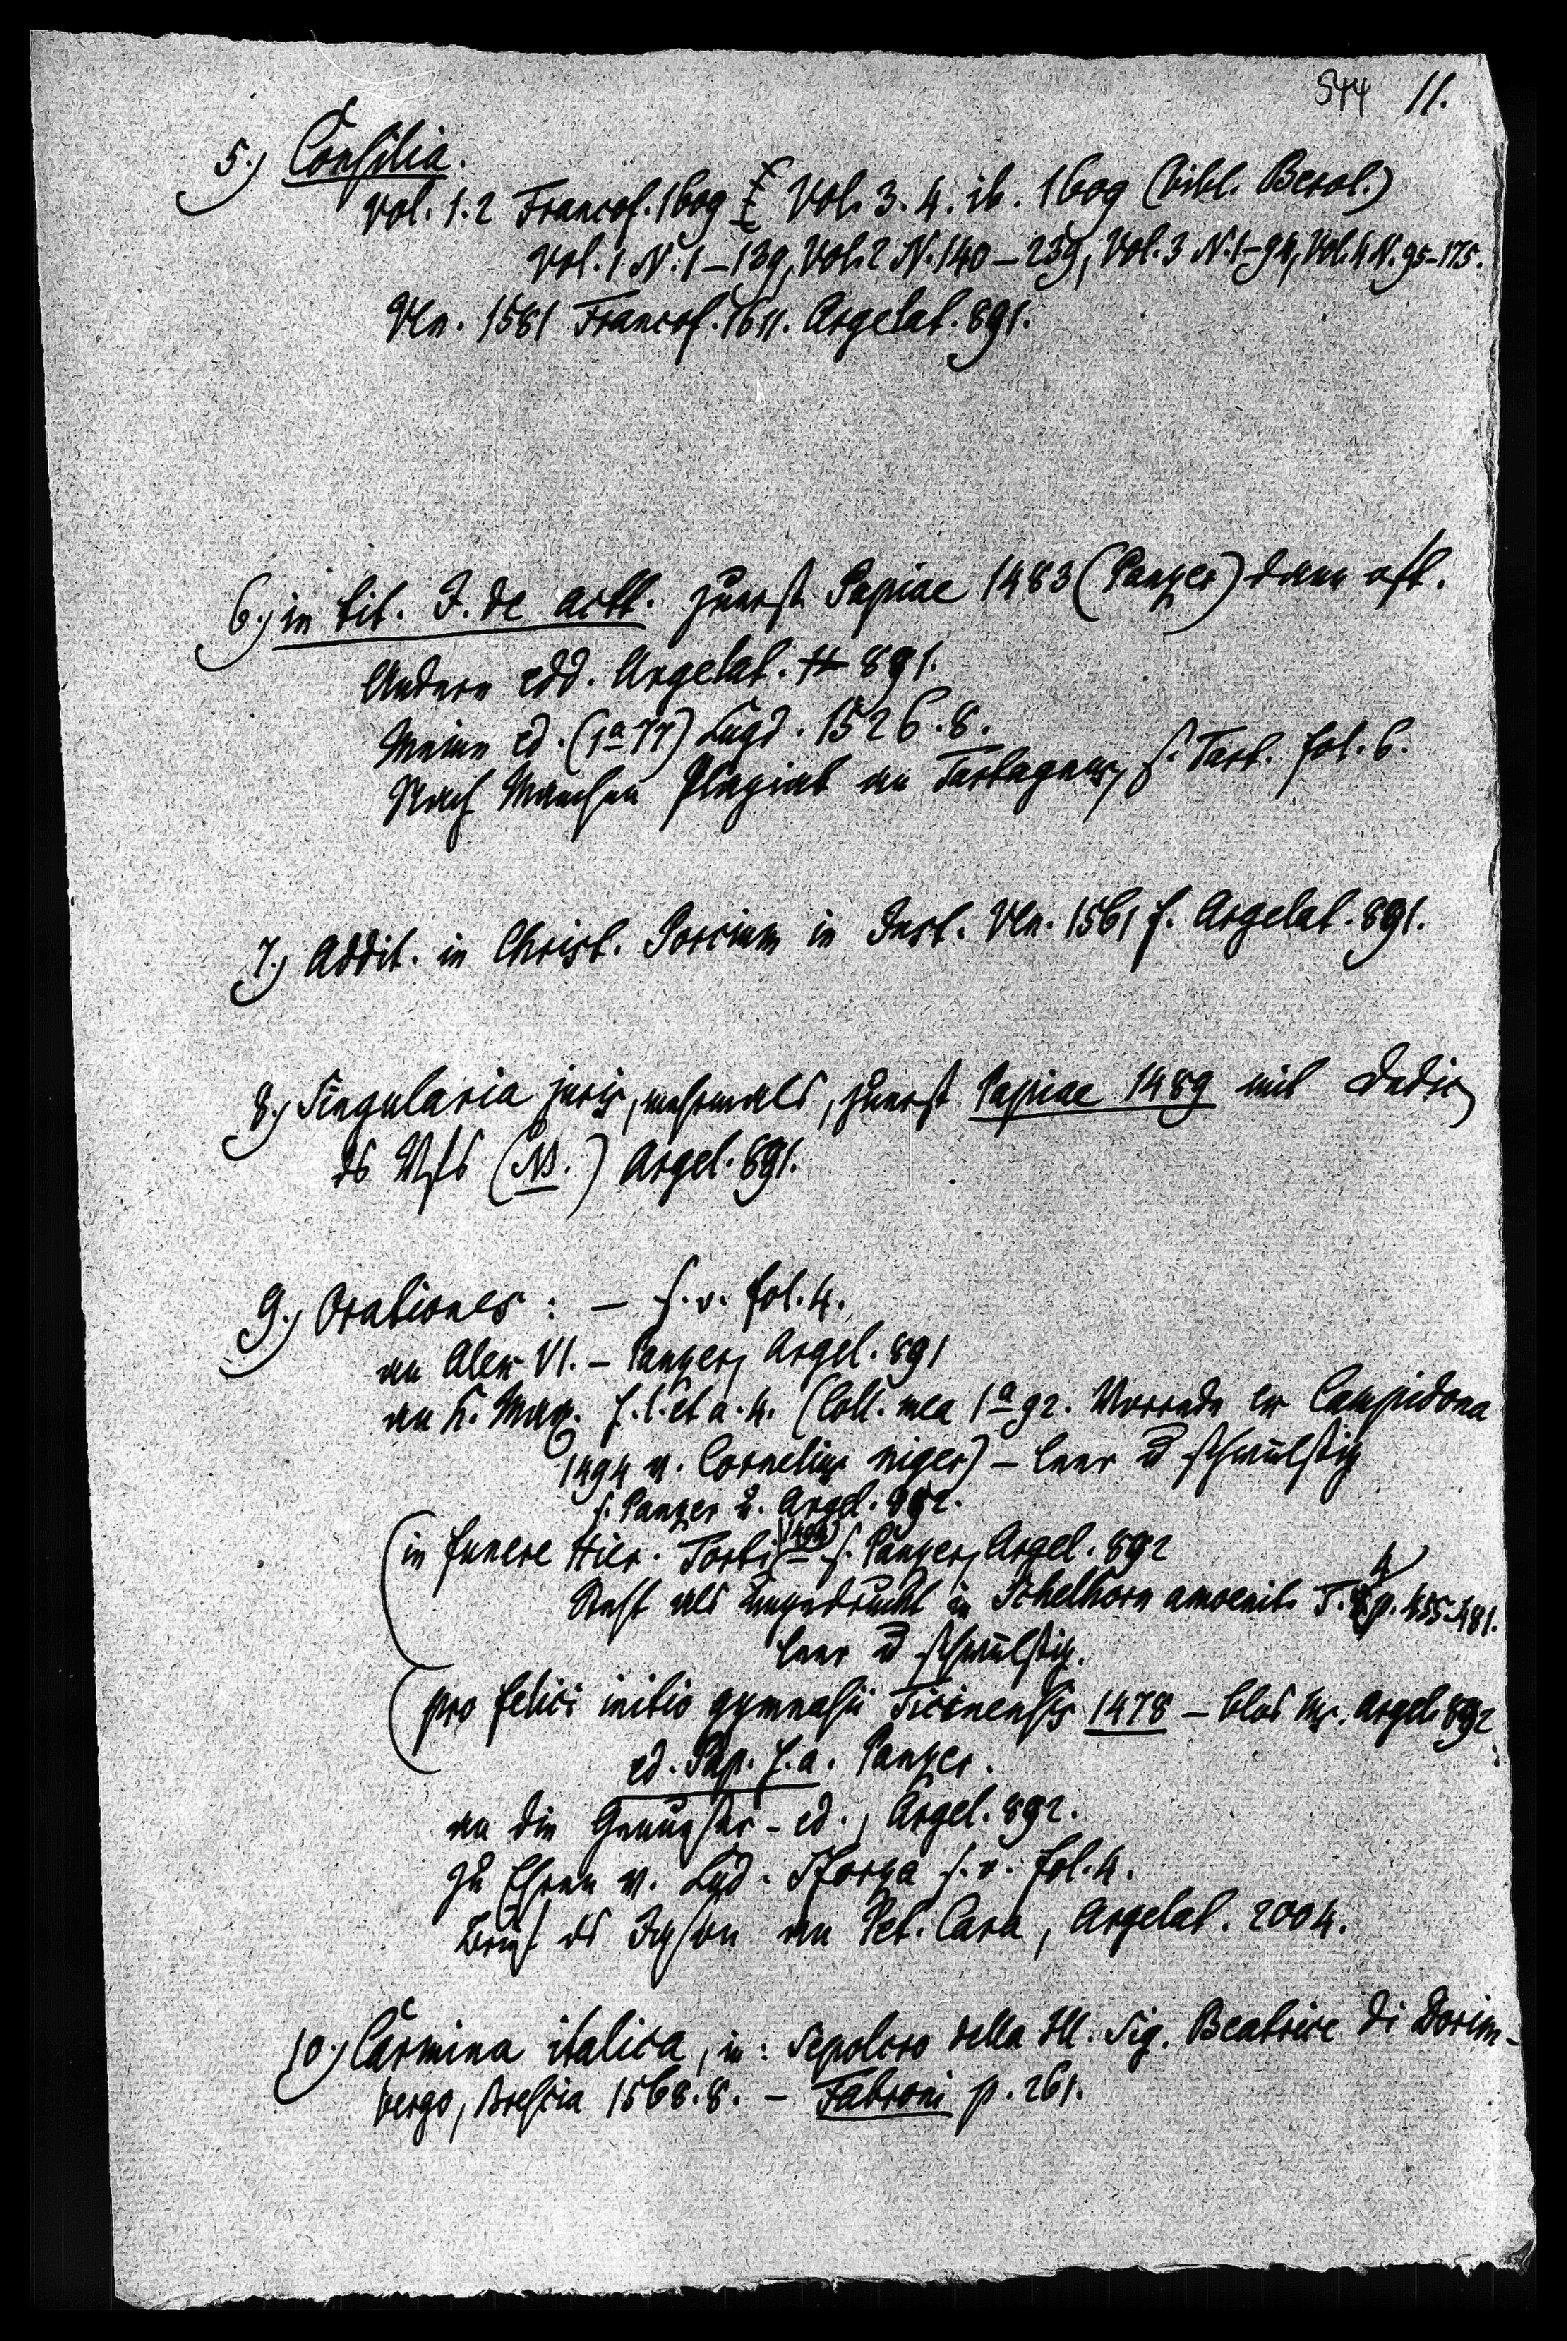 544 11.
5.) Consilia.
Vol. 1. 2 Francof. 1609 Vol. 3. 4. ib. 1609 (bibl. Berol.)
Vol. 1 N. 1–139, Vol. 2 N. 140–239, Vol. 3 N. 1–94, Vol. 4 N. 95–175.
Ven. 1581 Francof. 1611. Argelat. 891.
6.) in tit. J. de actt. zuerst Papiae 1483 (Panzer) dann oft.
Andere edd. Argelat. 891.
Meine ed. (1a 77) Lugd. 1526. 8.
Nach Manchen Plagiat an Tartagnus, s. Tart. fol. 6.
7.) Addit. in Christ. Porcium in Inst. Ven. 1561 f. Argelat. 891.
8.) Singularia juris, mehrmals, zuerst Papiae 1489 mit Dedic
ds Vfs (NB.) Argel. 891.
9.) Orationes: – s. v. fol. 4.
an Alex VI. – Panzer, Argel. 891
an K. Max. s. l. et a. 4. (Coll. mea 1a 92. Vorrede ex Campidona
1494 v. Cornelius niger) – leer u schwülstig
s. Panzer u. Argel. 892.
in funere Hier. Torti (1484) s. Panzer, Argel. 892
Steht als ungedruckt in Schelhorn amoenit. T. 4 p. 455–481.
leer u schwülstig.
pro felici initio gymnasii Ticinensis 1478 – blos Ms. Argel. 892
ed. Pap. s. a. Panzer.
an die Genueser – ed., Argel. 892.
zu Ehren v. Lud. Sforza s. v. fol. 4.
Brief ds Jason an Pet. Cara, Argelat. 2004.
10.) Carmina italica, in: Sepolcro della Ill. Sig. Beatrice di Dorim-
bergo, Brescia 1568. 8. – Fabroni p. 261.